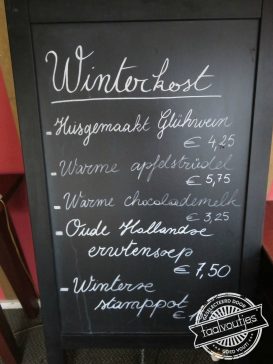 Winterkost
- Huisgemaakt Glühwein
€ 4,25
- Warme apfelstrüdel
€ 5,75
- Warme chocolademelk
€ 3,25
- Oude Hollandse
erwtensoep
€ 7,50
- Winterse
stamppot
€
GESELECTEERD DOOR
taalvoutjes